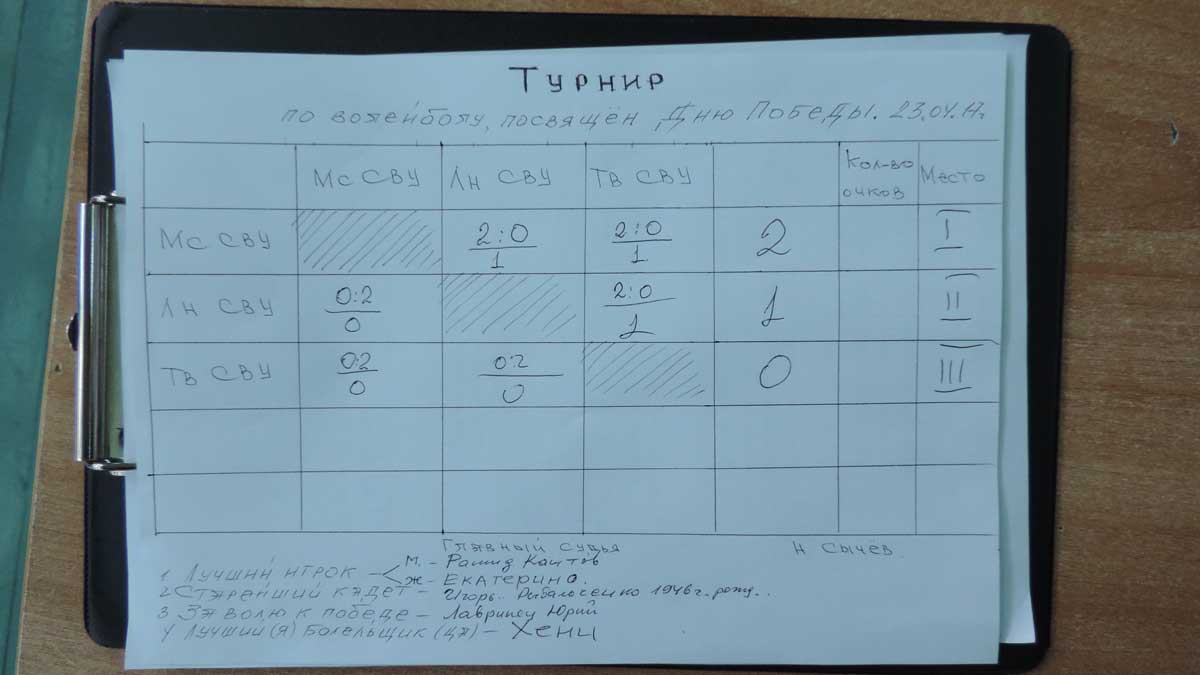 Турнир
по волейболу, посвящён Дню Победы. 23.04.17г.
Мс СВУ Лн СВУ Тв СВУ Кол-во очков Место
Мс СВУ 2:0 1 2:0 1 2 I
Лн СВУ 0:2 0 2:0 1 1 II
Тв СВУ 0:2 0 0:2 0 0 III
Главный судья Н Сычёв.
1. Лучший игрок М. - Рашид Каитов
Ж - Екатерина.
2 Старейший кадет - Игорь 1946г.
3 За волю к победе - Юрий
4 Лучший(я) Болельщик (ца) - Хени